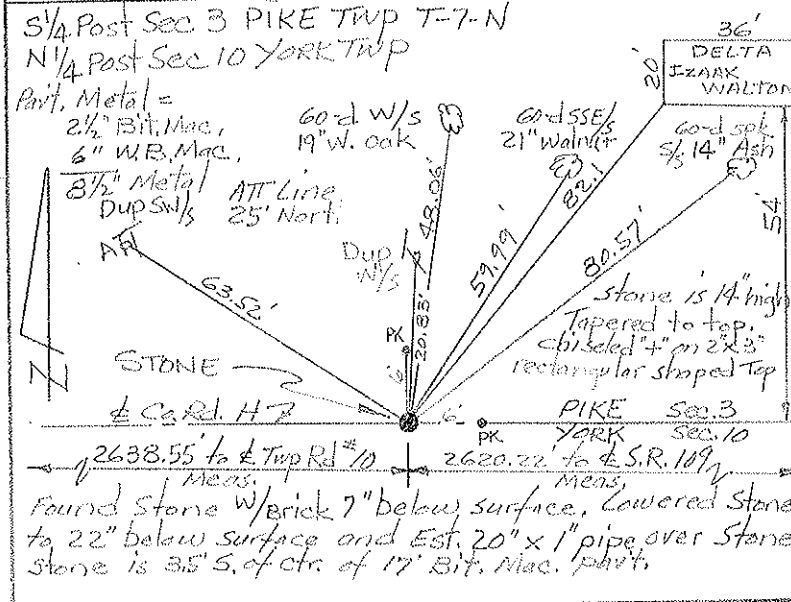 S1/4 Post Sec 3 PIKE TWP T-7-N
N1/4 Post Sec 10 YORK TWP
Pavt. Metal =
2½" Bit. Mac.
6" W.B. Mac.
8½" Metal
Dup SW/s
ATT Line
25' North
60-d W/s
19" W. oak
60-d SSE/s
21" Walnut
36'
20'
DELTA
IZAAK
WALTON
60-d spk
S/s 14" Ash
54'
63.52'
Dup
W/s
48.06'
20.83'
59.99'
82.1
80.57'
PK
6'
N
STONE
Stone is 14" high
Tapered to top.
Chiseled "+" on 2"x3"
rectangular shaped Top
℄ Co. Rd. H 7
6'
PK
PIKE Sec. 3
YORK Sec. 10
2638.55' to ℄ Twp Rd #10
Meas.
2620.22' to ℄ S.R. 109
Meas.
Found Stone W/Brick 7" below surface. Lowered Stone
to 22" below surface and Est. 20" x 1" pipe over Stone
Stone is 3.5' S. of ctr. of 17' Bit. Mac. pavt.